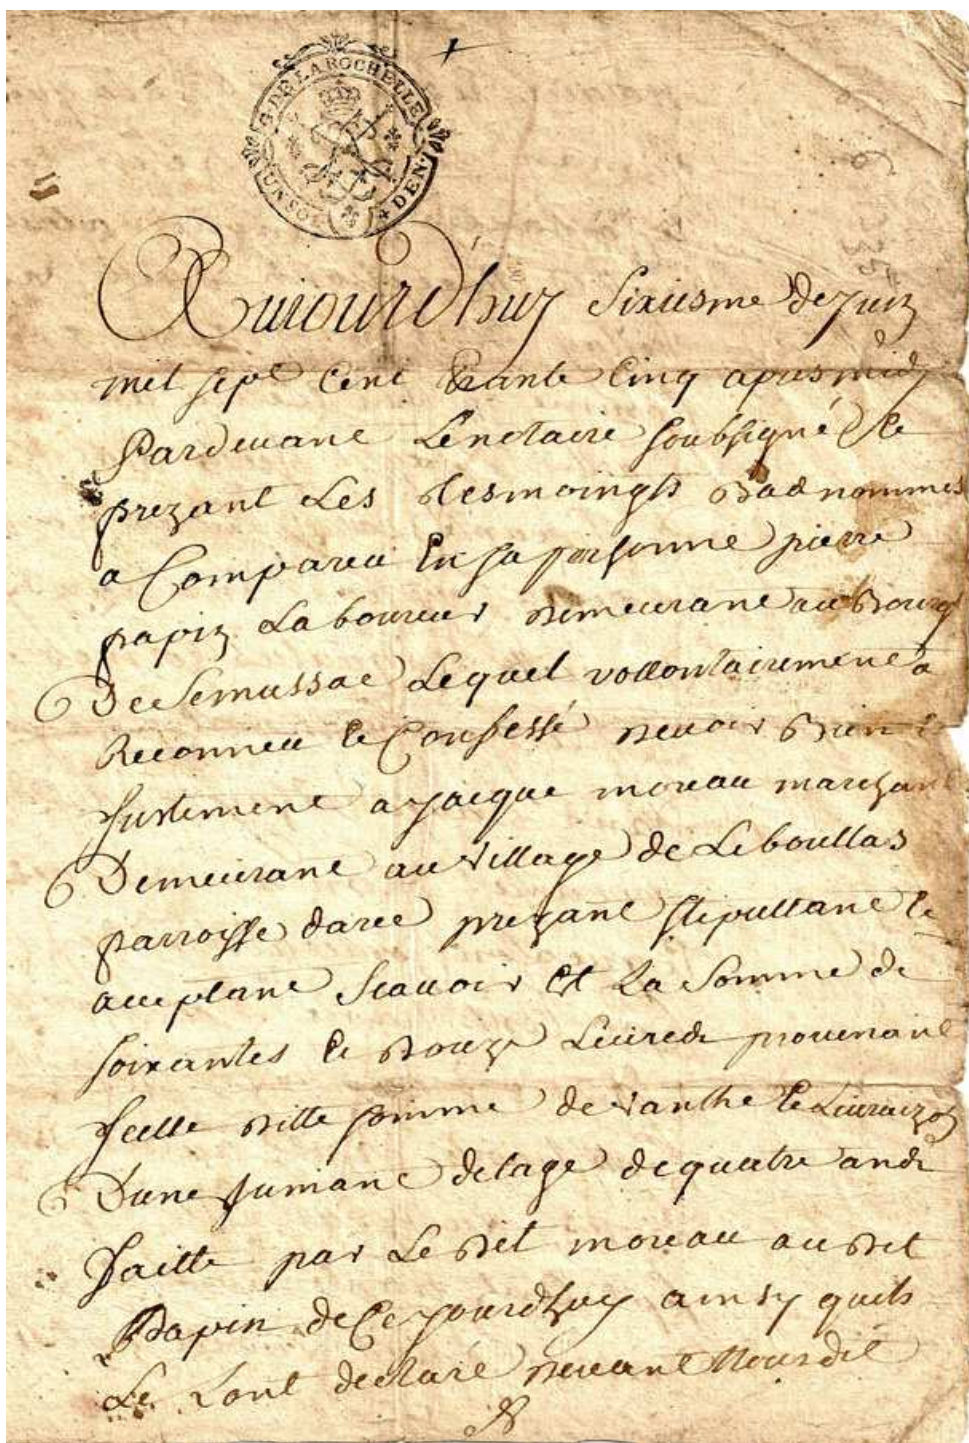 G. DE LA ROCHELLE
UN SOL
DEN
Aujourd'huy sixiesme de Juin
mil sept cent trante cinq apres midy
Pardevant le notaire soubsigné et
prezant les tesmoingts bas nommes
a Comparu en sa personne pierre
papin Laboureur demeurant au Bourg
De Semussac Lequel vollontairement a
Reconneu et Confessé devoir Bien et
Justement a Jacque moreau marchant
Demeurant au village de Leboullas
parroisse darce prezant stipullant et
acceptant scavoir est La somme de
soixantes et douze Livres provenant
Jcelle ditte somme de vanthe et Livraizon
Dune Jumant de lage de quatre ands
faitte par Le dit moreau au dit
Papin de Ce jourdhuy ainsy quils
Le Lont declaré devant Nous dit